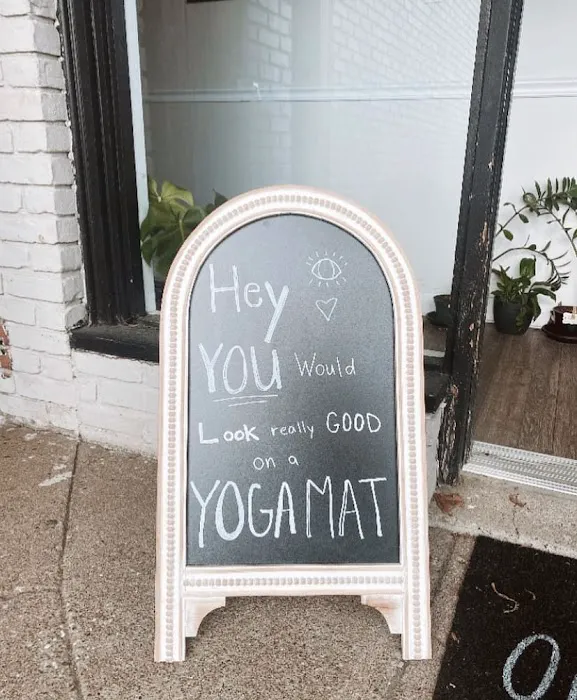 Hey
YOU Would
Look really GOOD
on a
YOGA MAT